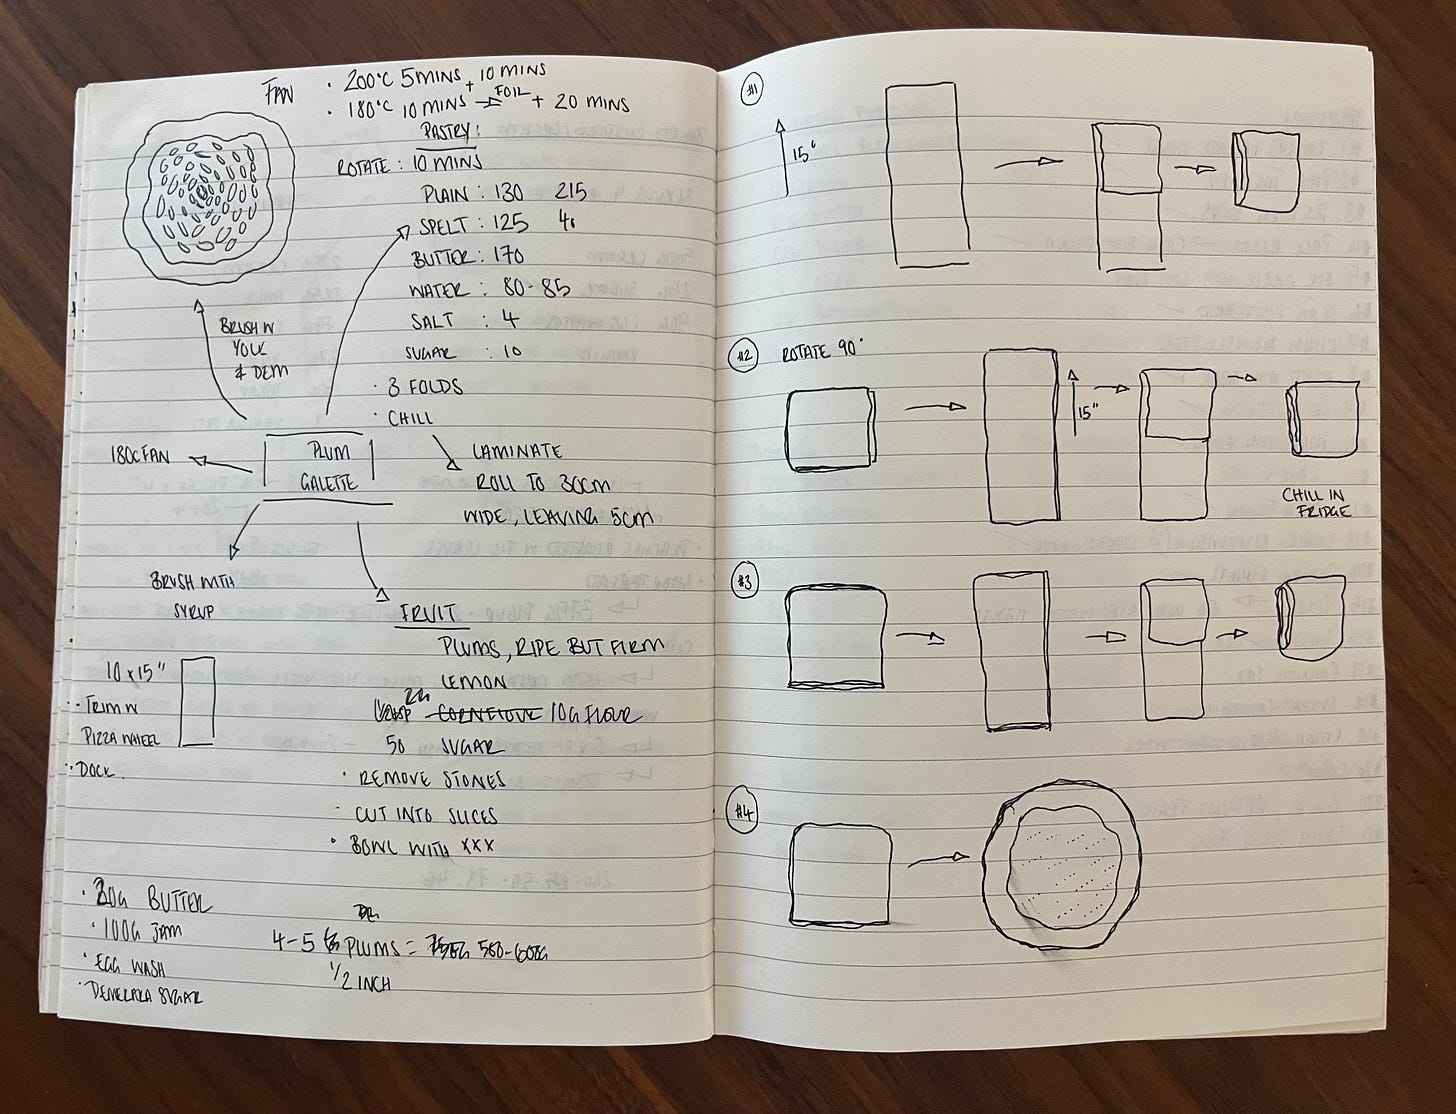 FAN · 200°C 5MINS + 10 MINS
· 180°C 10 MINS → FOIL + 20 MINS
PASTRY:
ROTATE: 10 MINS
PLAIN: 130 215
SPELT: 125 40
BUTTER: 170
WATER: 80-85
SALT : 4
SUGAR : 10
· 3 FOLDS
· CHILL
BRUSH W
YOLK
& DEM
180C FAN
PLUM
GALETTE
LAMINATE
ROLL TO 30CM
WIDE, LEAVING 5CM
BRUSH WITH
SYRUP
FRUIT
PLUMS, RIPE BUT FIRM
LEMON
CORNFLOUR 10G FLOUR
50 SUGAR
· REMOVE STONES
· CUT INTO SLICES
· BOWL WITH XXX
10 x 15"
· TRIM W
PIZZA WHEEL
· DOCK
· 20G BUTTER
· 100G JAM
· EGG WASH
· DEMERARA SUGAR
4-5 PLUMS = 550-600G
1/2 INCH
#1
15"
#2 ROTATE 90°
15"
CHILL IN
FRIDGE
#3
#4